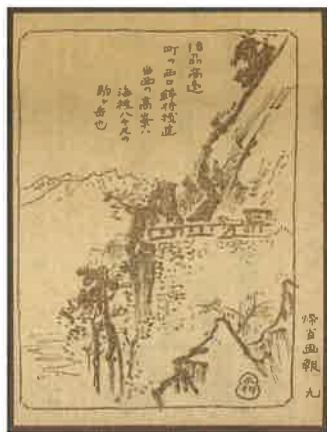 信州高遠
町の西口鉾持棧道
正面の高峯ハ
海抜八千尺の
駒ヶ岳也
帰省画報 九